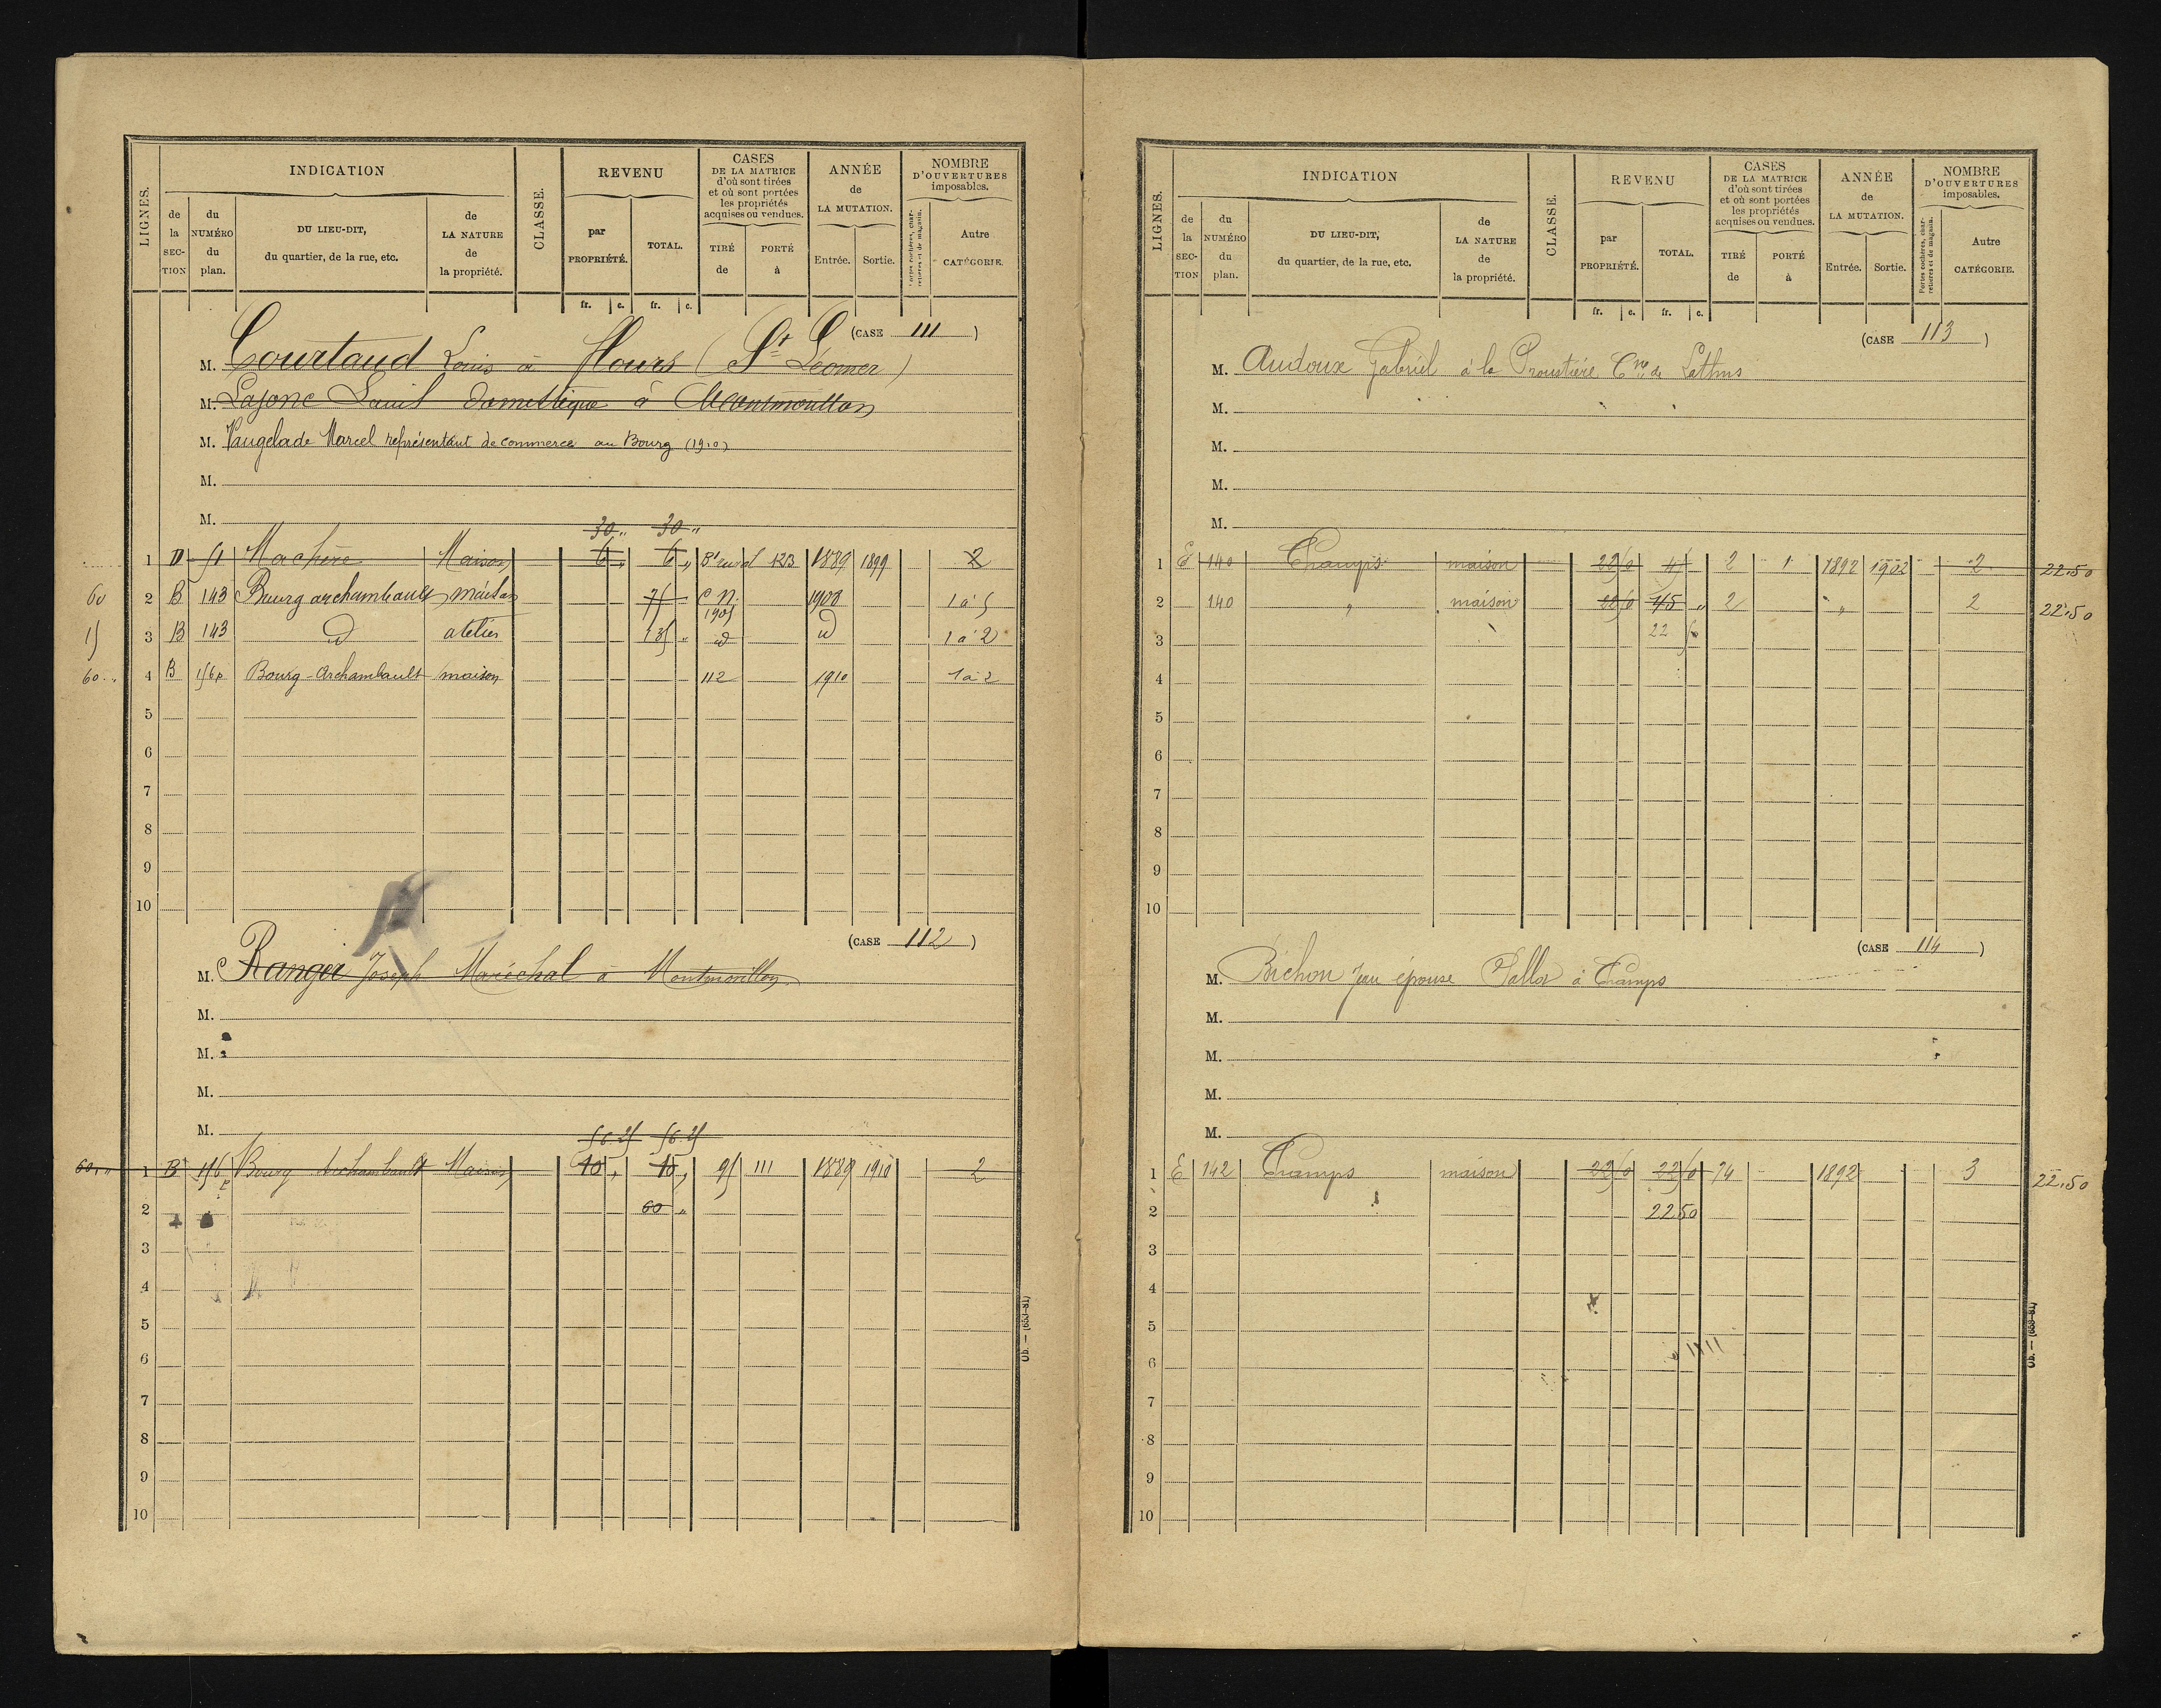 LIGNES.
INDICATION
de la SECTION
du NUMÉRO du plan.
DU LIEU-DIT, du quartier, de la rue, etc.
de LA NATURE de la propriété.
CLASSE.
REVENU
par PROPRIÉTÉ.
TOTAL.
fr. c. fr. c.
CASES DE LA MATRICE d'où sont tirées et où sont portées les propriétés acquises ou vendues.
TIRÉ de
PORTÉ à
ANNÉE de LA MUTATION.
Entrée. Sortie.
NOMBRE D'OUVERTURES imposables.
Portes cochères, charretières et de magasin.
Autre CATÉGORIE.
(CASE 111)
M. Courtaud Louis à flours (St Léomer)
M. Lajonc Louis domestique à Montmorillon
M. Vaugelade Marcel représentant de commerce au Bourg (1910)
M.
M.
30 " 30 "
1 D 51 Maison 6 " 6 " Bt rural 123 1889 1899 2
60 2 B 143 Bourg archambault maison 75 C N 1905 1908 1 à 5
15 3 B 143 d atelier 135 " d d 1 à 2
60 " 4 B 156p Bourg-Archambault maison 112 1910 1 à 2
5
6
7
8
9
10
(CASE 112)
M. Ranger Joseph Maréchal à Montmorillon
M.
M.
M.
M.
56 25 56 25
60 " 1 B 156p Bourg Archambault Maison 10 " 10 " 95 111 1889 1910 2
2 60 "
3
4
5
6
7
8
9
10
Ob. — (653-81)
LIGNES.
INDICATION
de la SECTION
du NUMÉRO du plan.
DU LIEU-DIT, du quartier, de la rue, etc.
de LA NATURE de la propriété.
CLASSE.
REVENU
par PROPRIÉTÉ.
TOTAL.
fr. c. fr. c.
CASES DE LA MATRICE d'où sont tirées et où sont portées les propriétés acquises ou vendues.
TIRÉ de
PORTÉ à
ANNÉE de LA MUTATION.
Entrée. Sortie.
NOMBRE D'OUVERTURES imposables.
Portes cochères, charretières et de magasin.
Autre CATÉGORIE.
(CASE 113)
M. Audoux Gabriel à la Proustière Cne de Lathus
M.
M.
M.
M.
1 E 140 Champs maison 22 50 2 1 1892 1902 2 22.50
2 140 " maison 22 50 45 " 2 " 2 22.50
3 22 50
4
5
6
7
8
9
10
(CASE 114)
M. Bichon Jean épouse à Champs
M.
M.
M.
M.
1 E 142 Champs maison 22 50 22 50 74 1892 3 22.50
2 22 50
3
4
5
6
7
8
9
10
Ob. — (653-81)